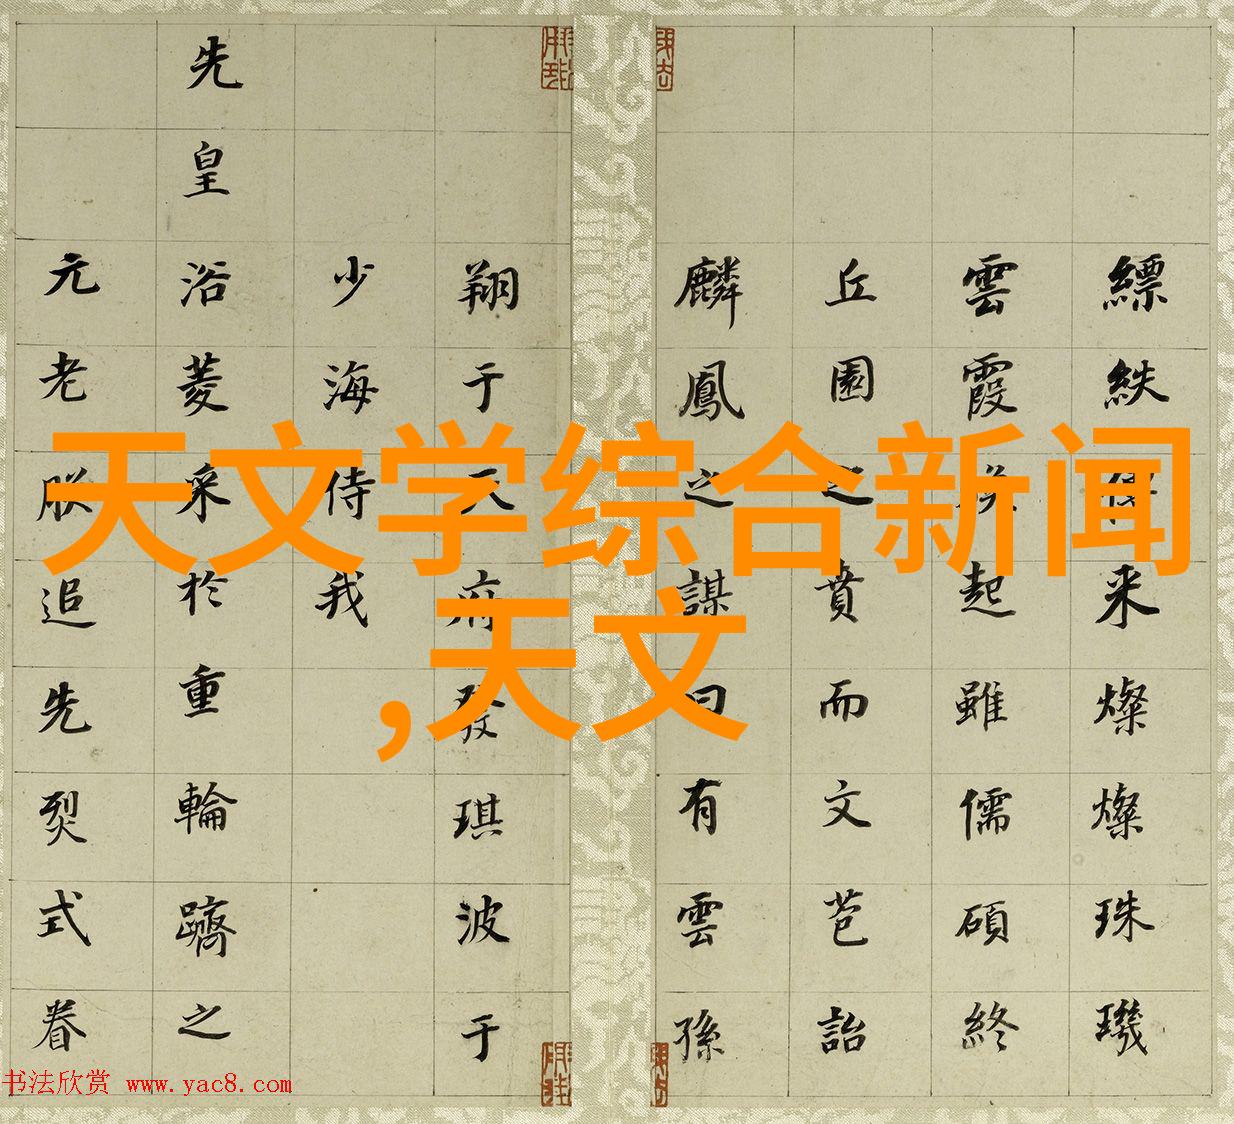 天文学综合新闻
,天文
縹紩来燦燦珠璣
雲霞起雖儒碩終
丘園之賁而文芑詒
麟鳳之謀曰有雲孫
翔于天府發琪波于
少海侍我
先皇浴菱采於重輪躋之
元老朕追先烈式眷
书法欣赏 www.yac8.com